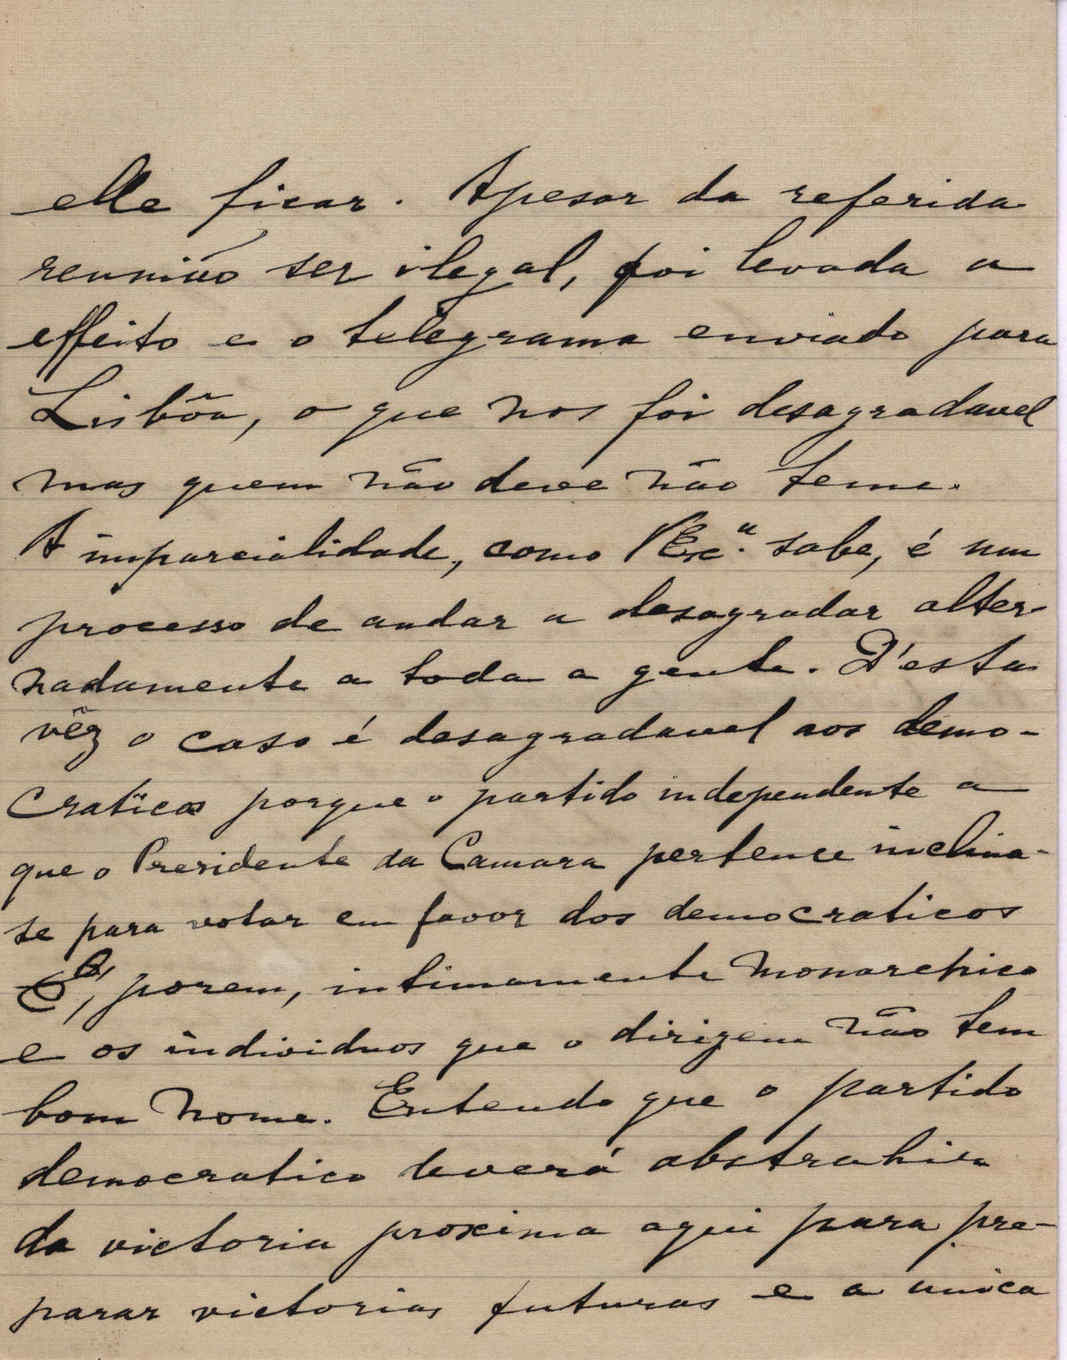 elle ficar. Apesar da referida
reunião ser ilegal, foi levada a
effeito e o telegrama enviado para
Lisbôa, o que nos foi desagradavel
mas quem não deve não teme.
A imparcialidade, como V Exª. sabe, é um
processo de andar a desagradar alter-
nadamente a toda a gente. D'esta
vêz o caso é desagradavel aos demo-
craticos porque o partido independente a
que o Presidente da Camara pertence inclina-
se para votar em favor dos democraticos
É, porem, intimamente monarchico
e os individuos que o dirigem não tem
bom nome. Entendo que o partido
democratico deverá abstrahir
da victoria proxima aqui para pre-
parar victorias futuras e a unica